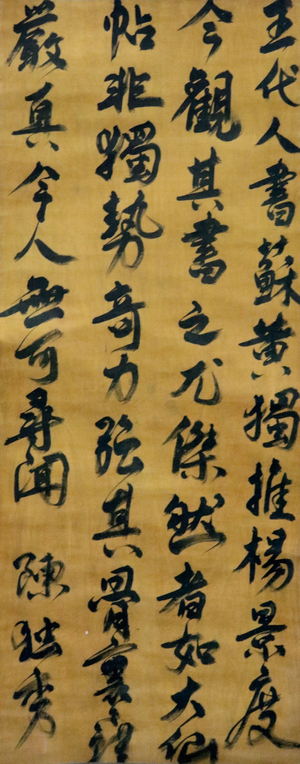 五代人書蘇黃獨推楊景度
今觀其書之尤傑然者如大仙
帖非獨勢奇力強其骨裏謹
嚴真令人無可尋間 陳独秀